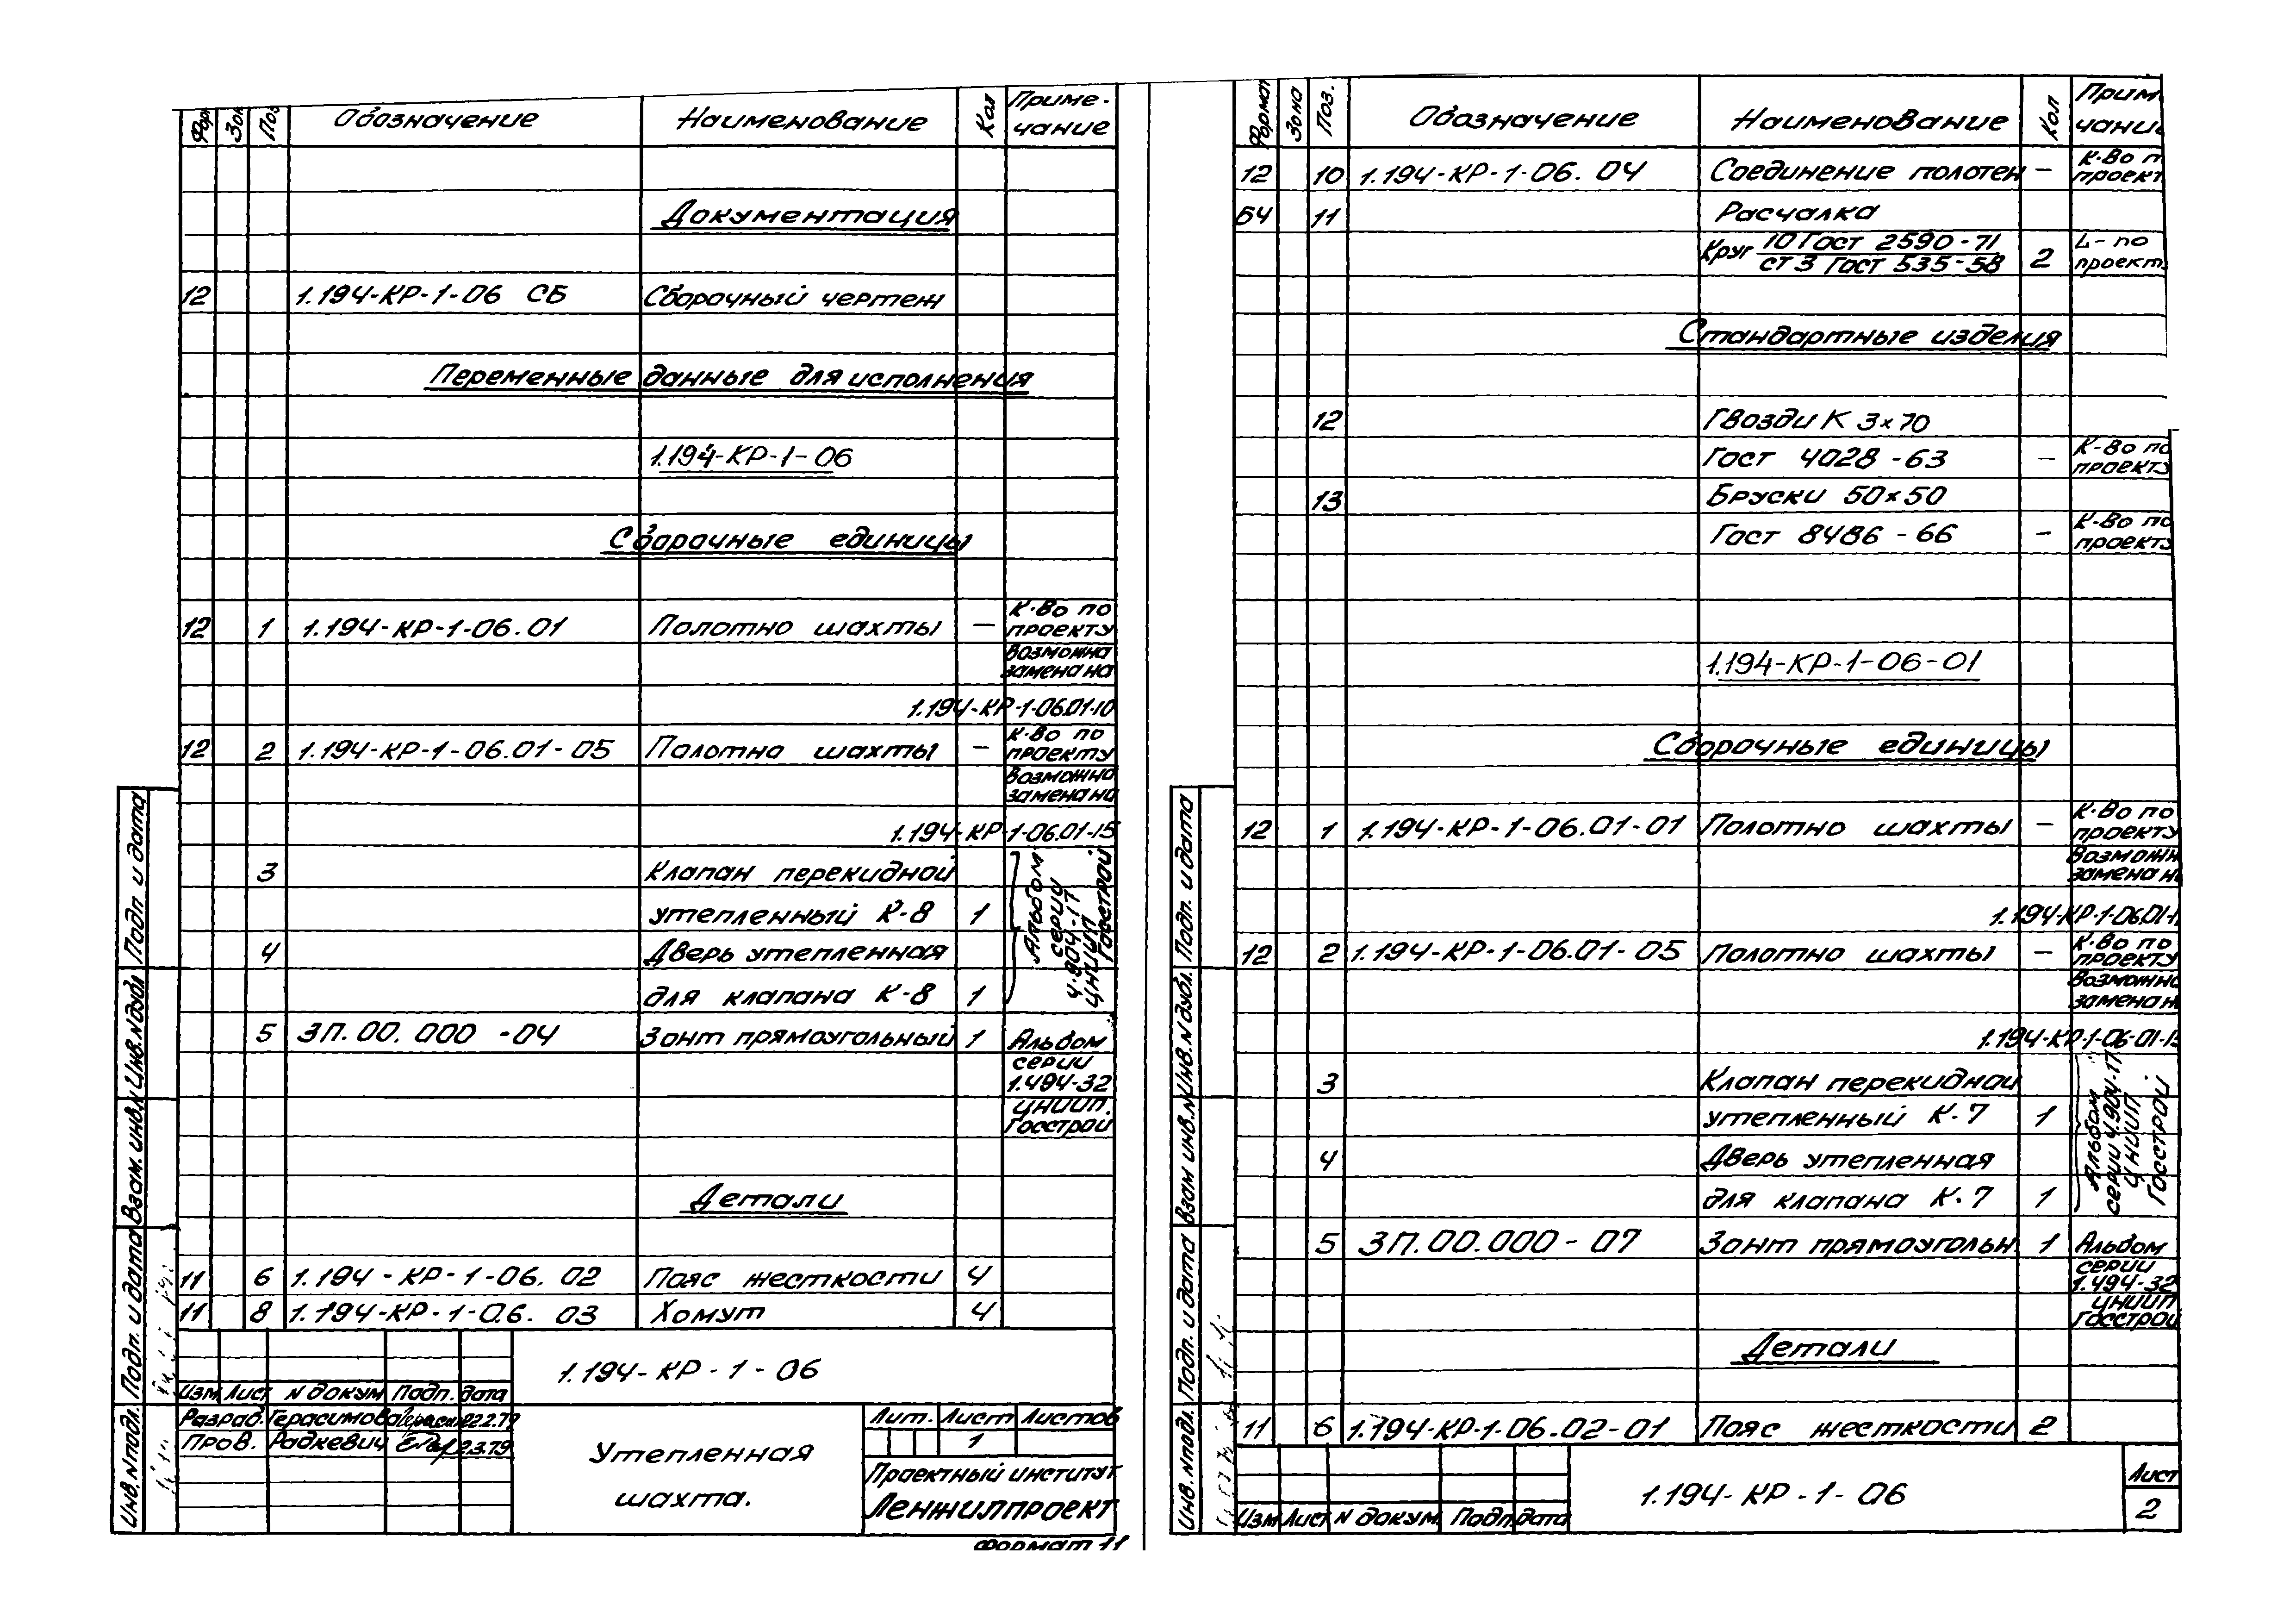 Фор Зон Поз Обозначение Наименование Кол Приме-
чание
Документация
12 1.194-КР-1-06 СБ Сборочный чертеж
Переменные данные для исполнения
1.194-КР-1-06
Сборочные единицы
12 1 1.194-КР-1-06.01 Полотно шахты — К-во по
проекту
Возможна
замена на
1.194-КР-1-06.01-10
12 2 1.194-КР-1-06.01-05 Полотно шахты — К-во по
проекту
Возможна
замена на
1.194-КР-1-06.01-15
3 Клапан перекидной
утепленный К-8 1
4 Дверь утепленная
для клапана К-8 1
Альбом
серии
4.904-17
ЦНИИП
Госстрой
5 ЗП.00.000-04 Зонт прямоугольный 1 Альбом
серии
1.494-32
ЦНИИП.
Госстрой
Детали
11 6 1.194-КР-1-06.02 Пояс жесткости 4
11 8 1.194-КР-1-06.03 Хомут 4
1.194-КР-1-06
Изм Лист N докум Подп. Дата
Разраб. Герасимова 22.2.79
Пров. Радкевич 2.3.79
Утепленная
шахта.
Лит. Лист Листов
1
Проектный институт
Ленжилпроект
Формат 11
Инв. N подл. Подп. и дата Взам. инв. N Инв. N дубл Подп и дата
Формат Зона Поз. Обозначение Наименование Кол Прим
чание
12 10 1.194-КР-1-06.04 Соединение полотен — К-во п
проект
БЧ 11 Расчалка
Круг 10 Гост 2590-71
ст 3 Гост 535-58 2 L-по
проект
Стандартные изделия
12 Гвозди К 3×70
Гост 4028-63 — К-во по
проекту
13 Бруски 50×50
Гост 8486-66 — К-во по
проекту
1.194-КР-1-06-01
Сборочные единицы
12 1 1.194-КР-1-06.01-01 Полотно шахты — К-во по
проекту
Возможн
замена н
1.194-КР-1-06.01-1
12 2 1.194-КР-1-06.01-05 Полотно шахты — К-во по
проекту
Возможна
замена н
1.194-КР-1-06-01-15
3 Клапан перекидной
утепленный К-7 1
4 Дверь утепленная
для клапана К-7 1
Альбом
серии 4.904-17
ЦНИИП
Госстрой
5 ЗП.00.000-07 Зонт прямоугольн 1 Альбом
серии
1.494-32
ЦНИИП
Госстрой
Детали
11 6 1.194-КР-1-06.02-01 Пояс жесткости 2
1.194-КР-1-06
Изм Лист N докум. Подп. дата
Лист
2
Инв. N подл Подп. и дата Взам инв. N Инв. N дубл. Подп. и дата